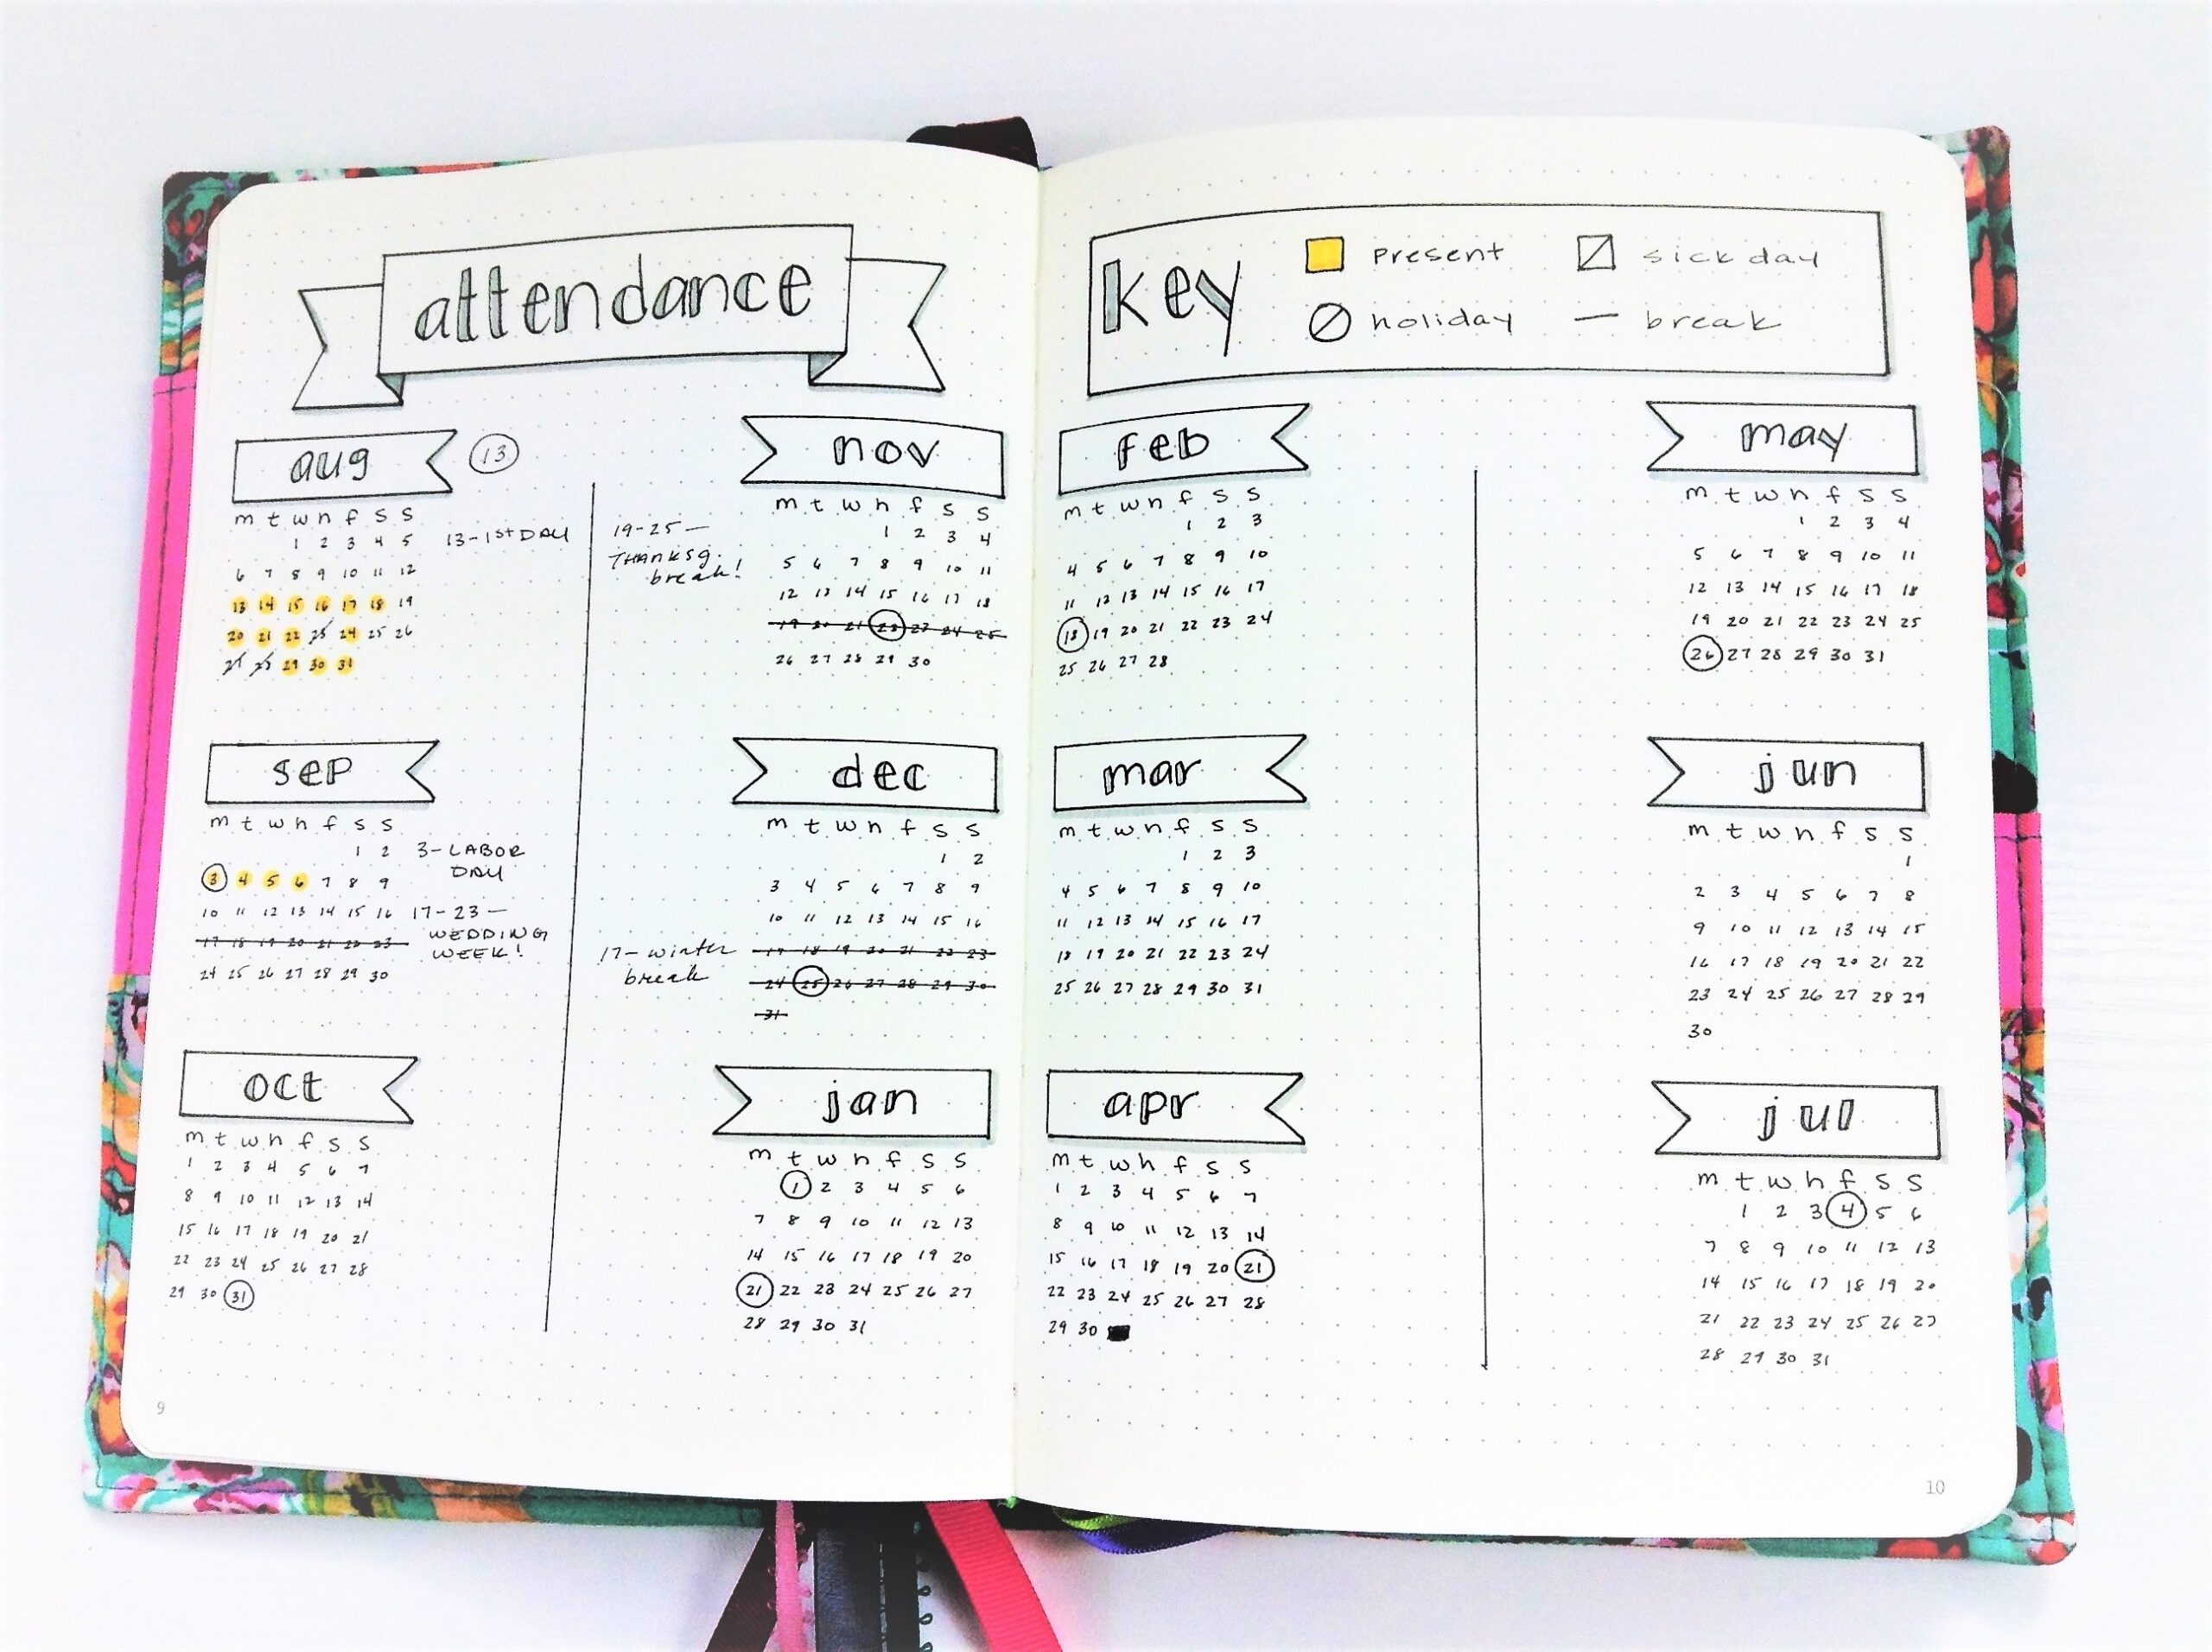 attendance
aug
13
m t w h f s s
1 2 3 4 5
6 7 8 9 10 11 12
13 14 15 16 17 18 19
20 21 22 23 24 25 26
27 28 29 30 31
13-1st DAY
sep
m t w h f s s
1 2
3 4 5 6 7 8 9
10 11 12 13 14 15 16
17 18 19 20 21 22 23
24 25 26 27 28 29 30
3-LABOR
DAY
17-23-
WEDDING
WEEK!
oct
m t w h f s s
1 2 3 4 5 6 7
8 9 10 11 12 13 14
15 16 17 18 19 20 21
22 23 24 25 26 27 28
29 30 31
nov
m t w h f s s
1 2 3 4
5 6 7 8 9 10 11
12 13 14 15 16 17 18
19 20 21 22 23 24 25
26 27 28 29 30
19-25-
THANKSG.
break!
dec
m t w h f s s
1 2
3 4 5 6 7 8 9
10 11 12 13 14 15 16
17 18 19 20 21 22 23
24 25 26 27 28 29 30
31
17-winter
break
jan
m t w h f s s
1 2 3 4 5 6
7 8 9 10 11 12 13
14 15 16 17 18 19 20
21 22 23 24 25 26 27
28 29 30 31
9
key
present
sick day
holiday
break
feb
m t w h f s s
1 2 3
4 5 6 7 8 9 10
11 12 13 14 15 16 17
18 19 20 21 22 23 24
25 26 27 28
mar
m t w h f s s
1 2 3
4 5 6 7 8 9 10
11 12 13 14 15 16 17
18 19 20 21 22 23 24
25 26 27 28 29 30 31
apr
m t w h f s s
1 2 3 4 5 6 7
8 9 10 11 12 13 14
15 16 17 18 19 20 21
22 23 24 25 26 27 28
29 30
may
m t w h f s s
1 2 3 4
5 6 7 8 9 10 11
12 13 14 15 16 17 18
19 20 21 22 23 24 25
26 27 28 29 30 31
jun
m t w h f s s
1
2 3 4 5 6 7 8
9 10 11 12 13 14 15
16 17 18 19 20 21 22
23 24 25 26 27 28 29
30
jul
m t w h f s s
1 2 3 4 5 6
7 8 9 10 11 12 13
14 15 16 17 18 19 20
21 22 23 24 25 26 27
28 29 30 31
10